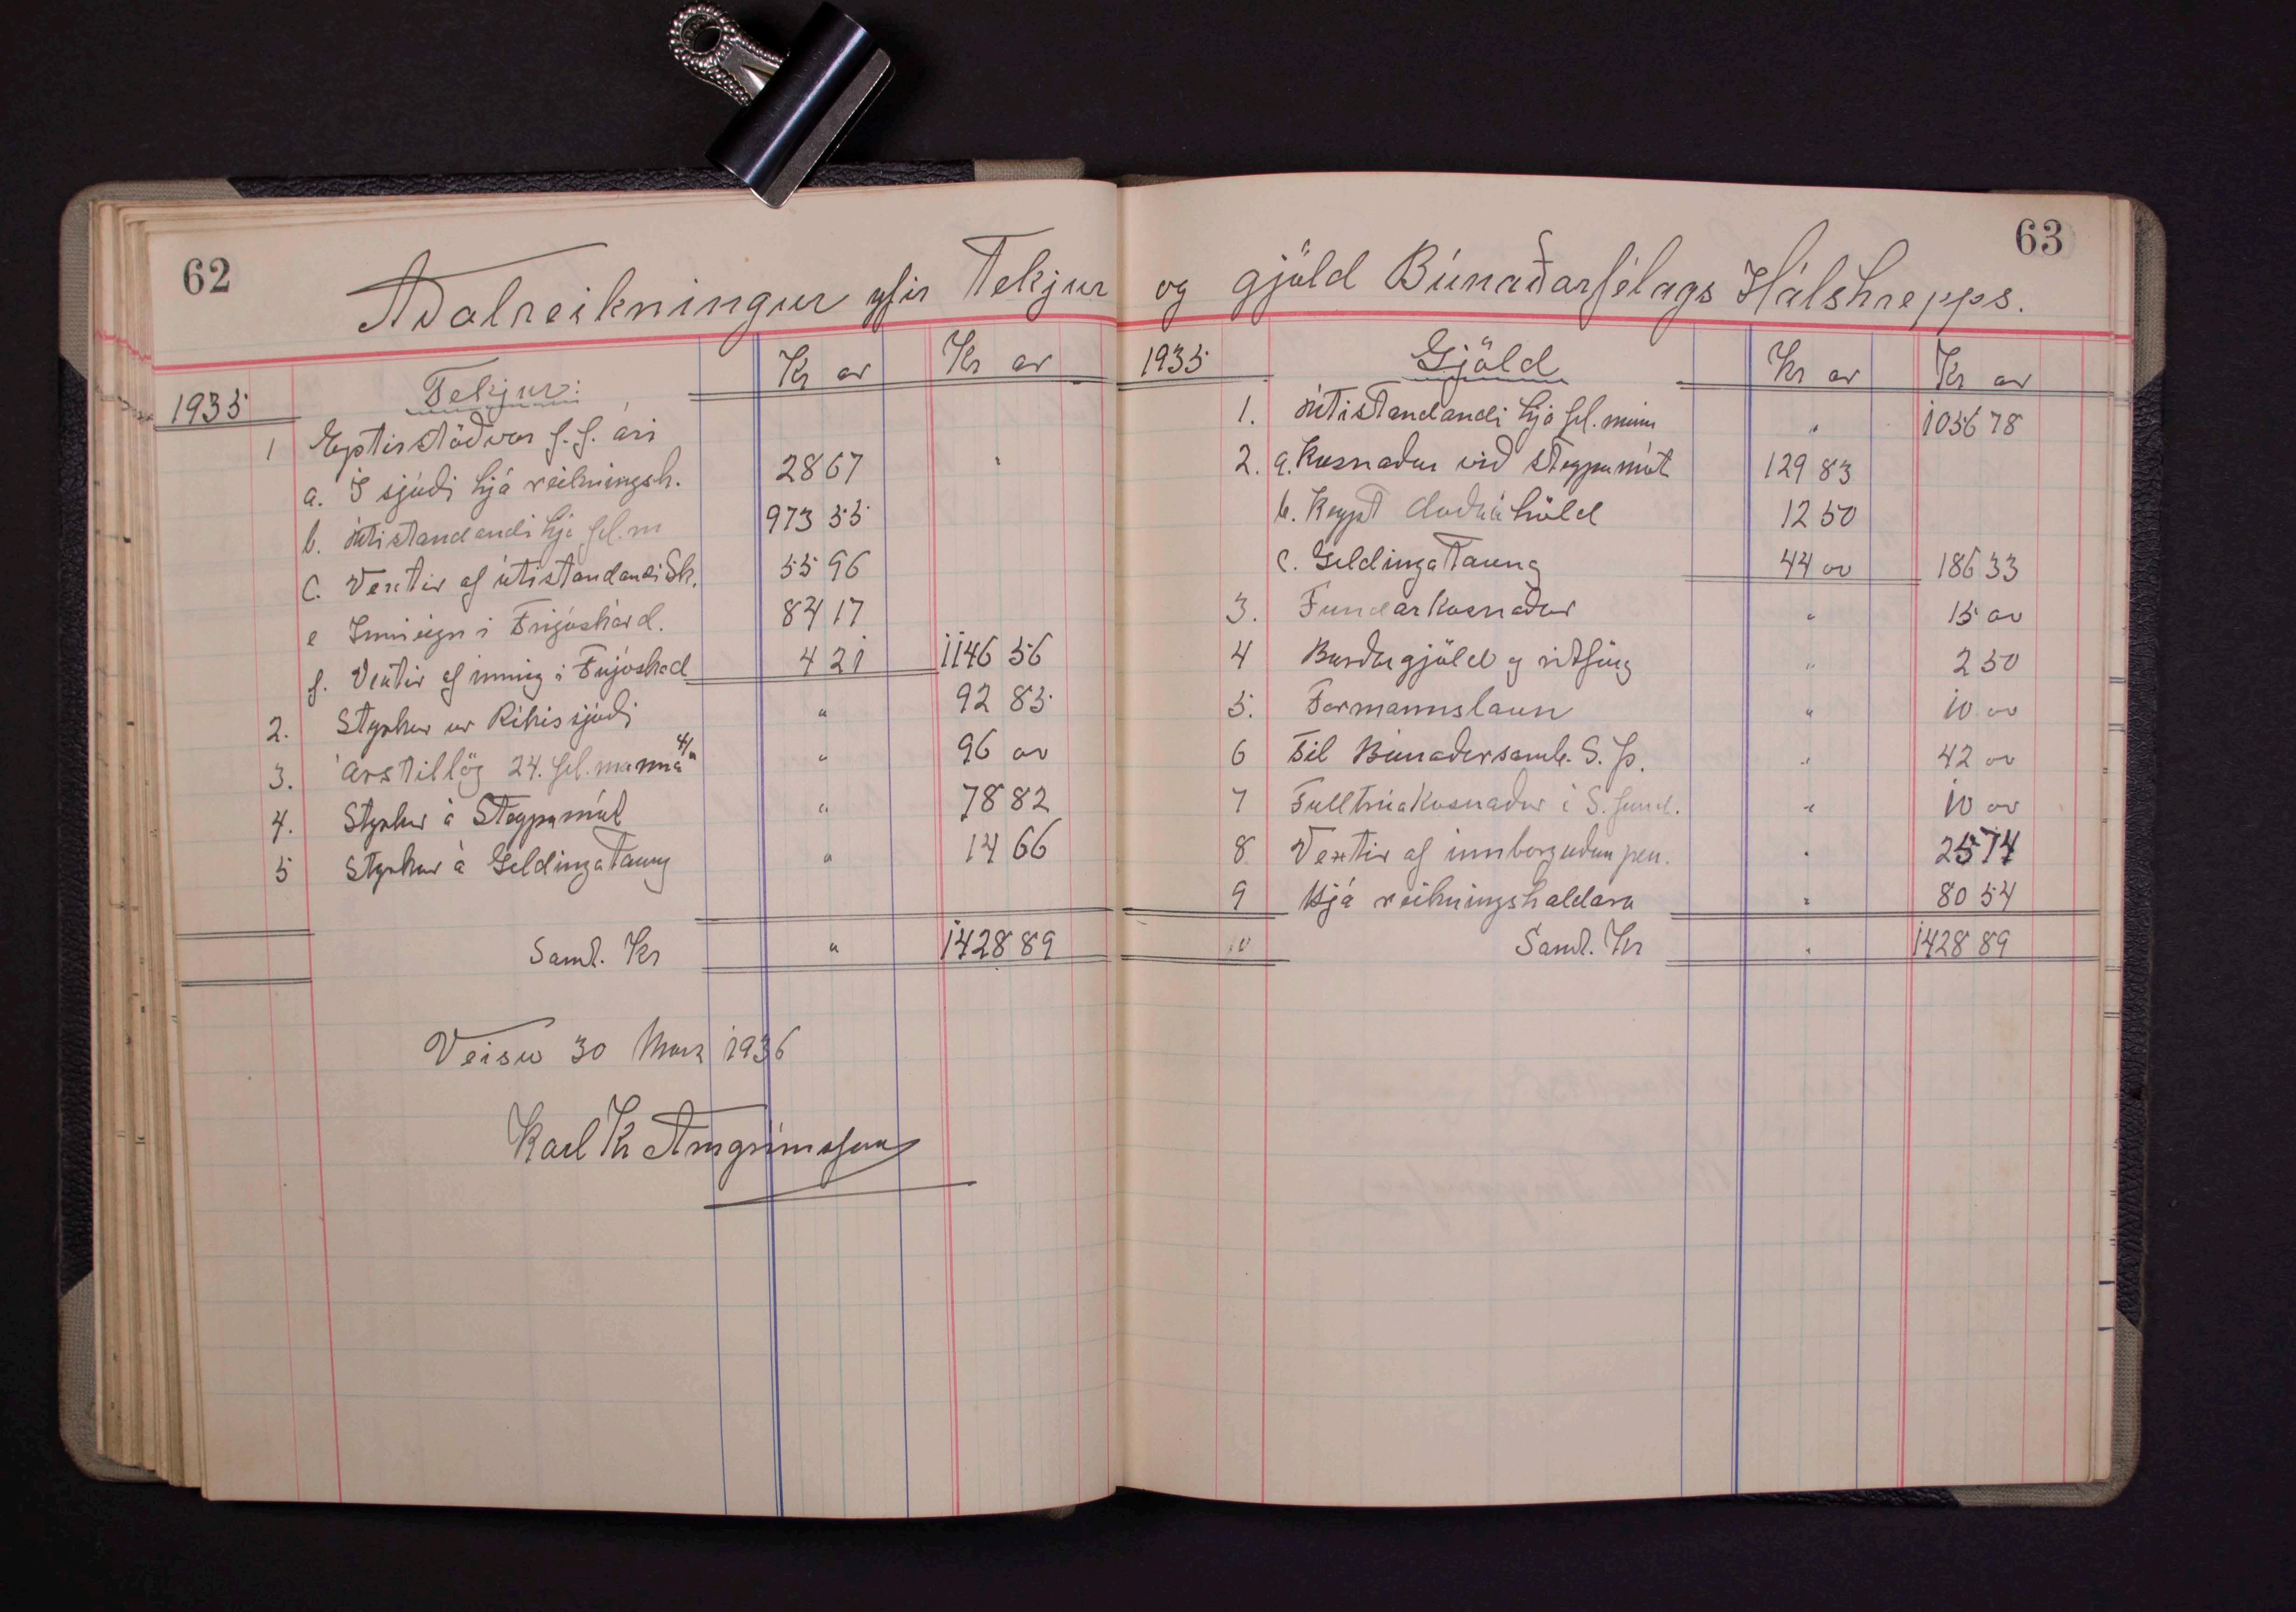 62
63
Aðalreikningur yfir Tekjur og gjöld Búnaðarfélags Hálshrepps.
1935 Tekjur: Kr ar Kr ar
1 Eptirstöðvar f. f. ári
a. Í sjóði hjá reikningsh. 28 67 "
b. útistandandi hjá fél.m 973 55
c. Vextir af útistandandi Sk. 55 96
e Inneign i Fnjóskárd. 84 17
f. Vextir af inneig i Fnjóskad 4 21 1146 56
2. Styrkur ur Rikissjóði " 92 85
3. Árstillög 24. fél.manna 4/" " 96 oo
4. Styrkur á Steypumót " 78 82
5 Styrkur á Geldingataung " 14 66
Saml. Kr " 1428 89
Veisu 30 Mars 1936
Karl Kr Arngrímsson
1935 Gjöld Kr ar Kr ar
1. útistandandi hjá fél.mönn " 1056 78
2. a. Kosnadur vid steypumót 129 83
b. Keypt áhöld 12 50
c. Geldingataung 44 oo 186 33
3. Fundarkosnadur " 15 oo
4 Burdargjöld og ritföng " 2 50
5. Formannslaun " 10 oo
6 Til Búnadarsamb. S. Þ. " 42 oo
7 Fulltrúakosnadur i S. fund. " 10 oo
8 Vextir af innborguðum pen. " 25 74
9 Hjá reikningshaldara " 80 54
10 Saml. Kr " 1428 89